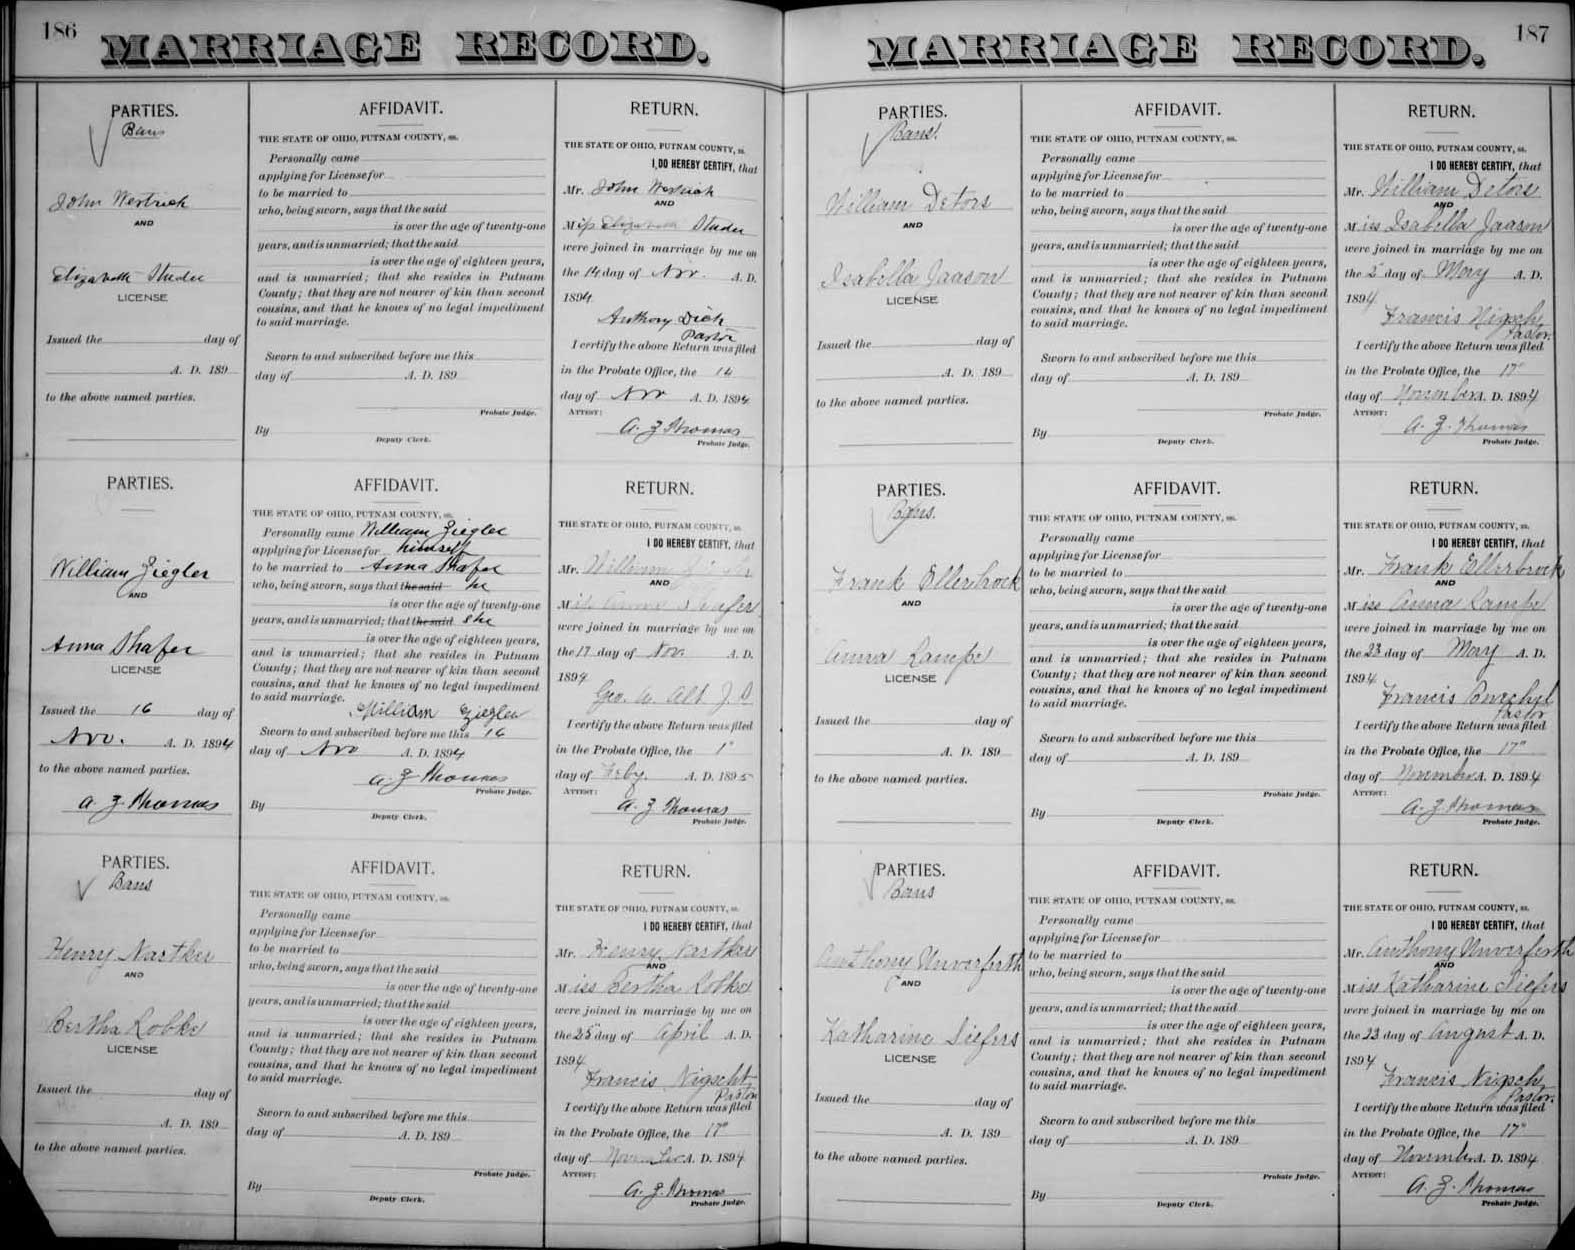 186
MARRIAGE RECORD.
PARTIES.
Bans
John Westrick
AND
Elizabeth Studer
LICENSE
Issued the day of
A. D. 189
to the above named parties.
AFFIDAVIT.
THE STATE OF OHIO, PUTNAM COUNTY, ss.
Personally came
applying for License for
to be married to
who, being sworn, says that the said
is over the age of twenty-one
years, and is unmarried; that the said
is over the age of eighteen years,
and is unmarried; that she resides in Putnam
County; that they are not nearer of kin than second
cousins, and that he knows of no legal impediment
to said marriage.
Sworn to and subscribed before me this
day of A. D. 189
Probate Judge.
By
Deputy Clerk.
RETURN.
THE STATE OF OHIO, PUTNAM COUNTY, ss.
I DO HEREBY CERTIFY, that
Mr. John Westrick
AND
Miss Elizabeth Studer
were joined in marriage by me on
the 14 day of Nov. A. D.
1894
Anthony Dick
Pastor
I certify the above Return was filed
in the Probate Office, the 14
day of Nov A. D. 1894
ATTEST:
A. Z. Thomas
Probate Judge.
PARTIES.
William Ziegler
AND
Anna Shafer
LICENSE
Issued the 16 day of
Nov. A. D. 1894
to the above named parties.
A. Z. Thomas
AFFIDAVIT.
THE STATE OF OHIO, PUTNAM COUNTY, ss.
Personally came William Ziegler
applying for License for himself
to be married to Anna Shafer
who, being sworn, says that the said he
is over the age of twenty-one
years, and is unmarried; that the said she
is over the age of eighteen years,
and is unmarried; that she resides in Putnam
County; that they are not nearer of kin than second
cousins, and that he knows of no legal impediment
to said marriage.
William Ziegler
Sworn to and subscribed before me this 16
day of Nov A. D. 1894
A. Z. Thomas
Probate Judge.
By
Deputy Clerk.
RETURN.
THE STATE OF OHIO, PUTNAM COUNTY, ss.
I DO HEREBY CERTIFY, that
Mr. William
AND
Miss Anna Shafer
were joined in marriage by me on
the 17 day of Nov. A. D.
1894
Geo. W. Alt J. P.
I certify the above Return was filed
in the Probate Office, the 1"
day of Feby. A. D. 1895
ATTEST:
A. Z. Thomas
Probate Judge.
PARTIES.
Bans
Henry Nartker
AND
Bertha Lobke
LICENSE
Issued the day of
A. D. 189
to the above named parties.
AFFIDAVIT.
THE STATE OF OHIO, PUTNAM COUNTY, ss.
Personally came
applying for License for
to be married to
who, being sworn, says that the said
is over the age of twenty-one
years, and is unmarried; that the said
is over the age of eighteen years,
and is unmarried; that she resides in Putnam
County; that they are not nearer of kin than second
cousins, and that he knows of no legal impediment
to said marriage.
Sworn to and subscribed before me this
day of A. D. 189
Probate Judge.
By
Deputy Clerk.
RETURN.
THE STATE OF OHIO, PUTNAM COUNTY, ss.
I DO HEREBY CERTIFY, that
Mr. Henry Nartker
AND
Miss Bertha Lobke
were joined in marriage by me on
the 25" day of April A. D.
1894
Francis Nigsch
Pastor
I certify the above Return was filed
in the Probate Office, the 17"
day of November A. D. 1894
ATTEST:
A. Z. Thomas
Probate Judge.
187
MARRIAGE RECORD.
PARTIES.
Bans.
William Detors
AND
Isabella Jaason
LICENSE
Issued the day of
A. D. 189
to the above named parties.
AFFIDAVIT.
THE STATE OF OHIO, PUTNAM COUNTY, ss.
Personally came
applying for License for
to be married to
who, being sworn, says that the said
is over the age of twenty-one
years, and is unmarried; that the said
is over the age of eighteen years,
and is unmarried; that she resides in Putnam
County; that they are not nearer of kin than second
cousins, and that he knows of no legal impediment
to said marriage.
Sworn to and subscribed before me this
day of A. D. 189
Probate Judge.
By
Deputy Clerk.
RETURN.
THE STATE OF OHIO, PUTNAM COUNTY, ss.
I DO HEREBY CERTIFY, that
Mr. William Detors
AND
Miss Isabella Jaason
were joined in marriage by me on
the 2" day of May A. D.
1894
Francis Nigsch
Pastor.
I certify the above Return was filed
in the Probate Office, the 17"
day of November A. D. 1894
ATTEST:
A. Z. Thomas
Probate Judge.
PARTIES.
Bans.
Frank Ellerbrock
AND
Anna Lampe
LICENSE
Issued the day of
A. D. 189
to the above named parties.
AFFIDAVIT.
THE STATE OF OHIO, PUTNAM COUNTY, ss.
Personally came
applying for License for
to be married to
who, being sworn, says that the said
is over the age of twenty-one
years, and is unmarried; that the said
is over the age of eighteen years,
and is unmarried; that she resides in Putnam
County; that they are not nearer of kin than second
cousins, and that he knows of no legal impediment
to said marriage.
Sworn to and subscribed before me this
day of A. D. 189
Probate Judge.
By
Deputy Clerk.
RETURN.
THE STATE OF OHIO, PUTNAM COUNTY, ss.
I DO HEREBY CERTIFY, that
Mr. Frank Ellerbrock
AND
Miss Anna Lampe
were joined in marriage by me on
the 23 day of May A. D.
1894
Francis
Pastor
I certify the above Return was filed
in the Probate Office, the 17"
day of November A. D. 1894
ATTEST:
A. Z. Thomas
Probate Judge.
PARTIES.
Bans
Anthony Unverferth
AND
Katharine Siefers
LICENSE
Issued the day of
A. D. 189
to the above named parties.
AFFIDAVIT.
THE STATE OF OHIO, PUTNAM COUNTY, ss.
Personally came
applying for License for
to be married to
who, being sworn, says that the said
is over the age of twenty-one
years, and is unmarried; that the said
is over the age of eighteen years,
and is unmarried; that she resides in Putnam
County; that they are not nearer of kin than second
cousins, and that he knows of no legal impediment
to said marriage.
Sworn to and subscribed before me this
day of A. D. 189
Probate Judge.
By
Deputy Clerk.
RETURN.
THE STATE OF OHIO, PUTNAM COUNTY, ss.
I DO HEREBY CERTIFY, that
Mr. Anthony Unverferth
AND
Miss Katharine Siefers
were joined in marriage by me on
the 23 day of August A. D.
1894
Francis Nigsch
Pastor.
I certify the above Return was filed
in the Probate Office, the 17"
day of November A. D. 1894
ATTEST:
A. Z. Thomas
Probate Judge.